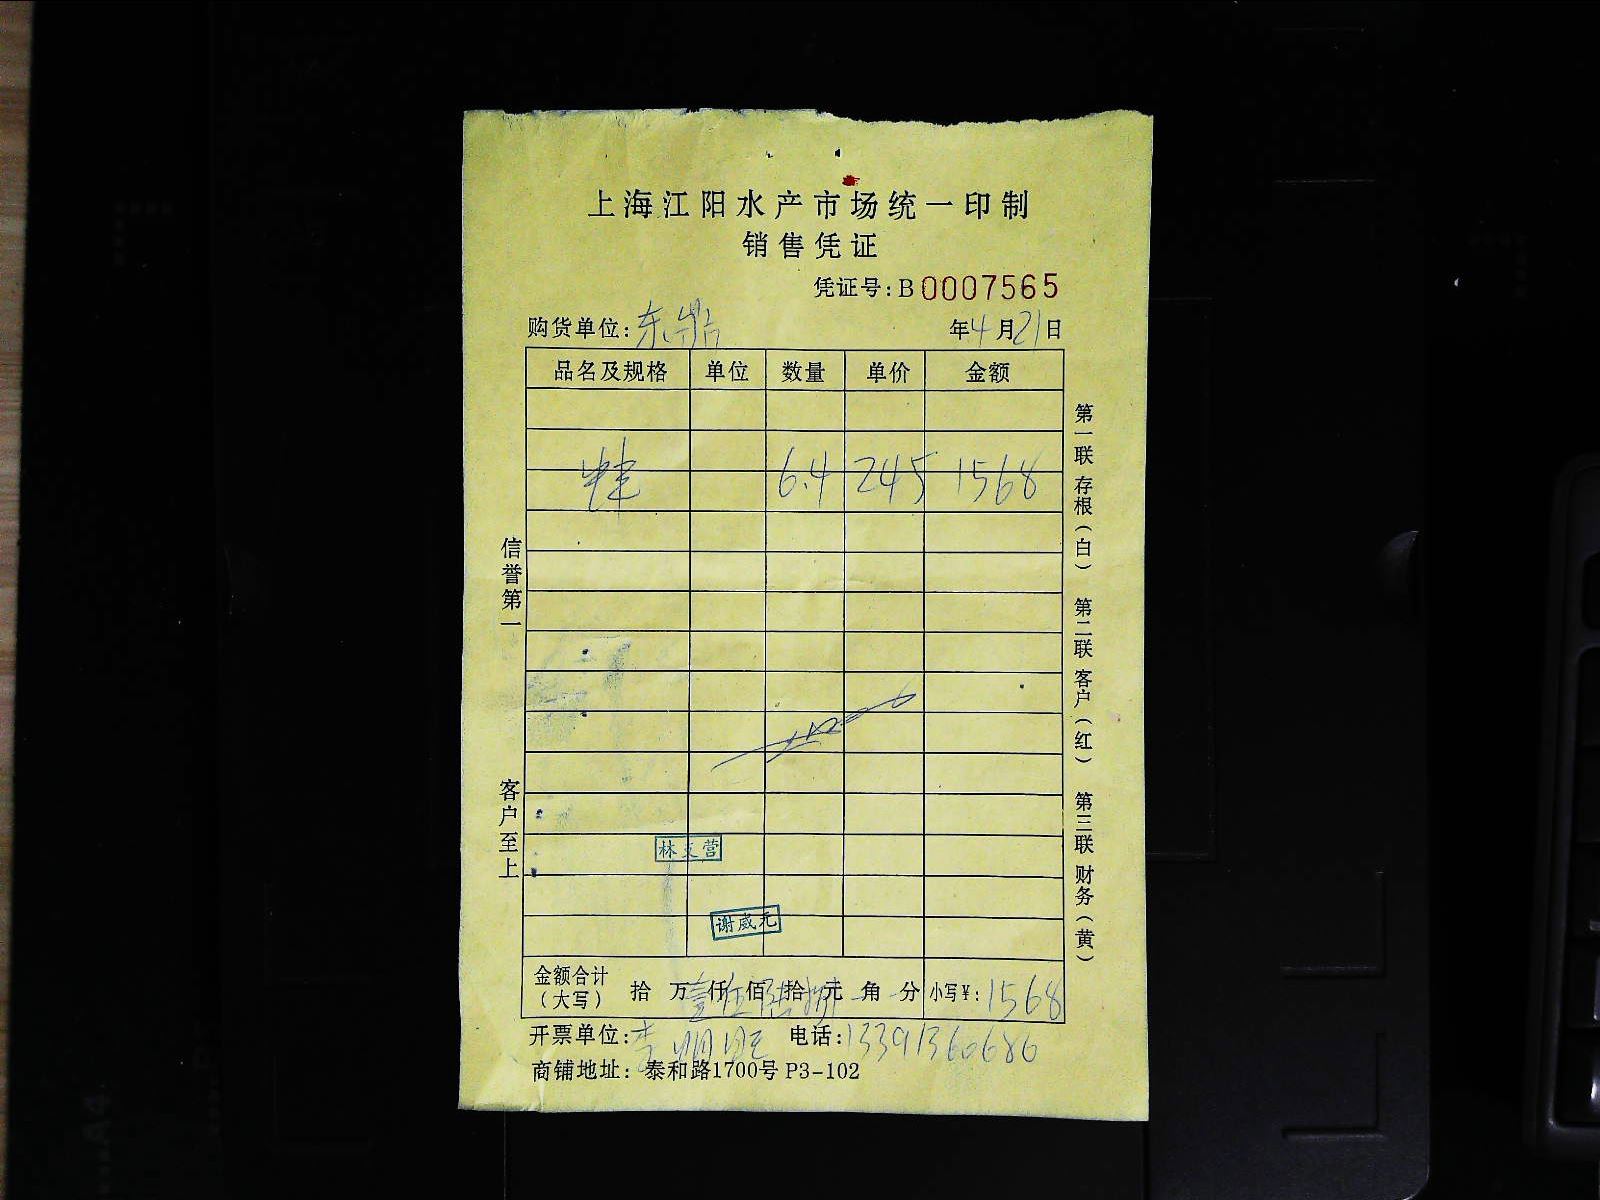 上海江阳水产市场统一印制
销售凭证
凭证号:B 0007565
购货单位:东鼎 年4月21日
品名及规格 单位 数量 单价 金额
6.4 245 1568
信誉第一
客户至上
第一联 存根(白) 第二联 客户(红) 第三联 财务(黄)
谢威无
金额合计(大写) 拾 万 仟 佰 拾 元 角 分 小写¥:1568
开票单位:李明旺 电话:13391360686
商铺地址: 泰和路1700号 P3-102